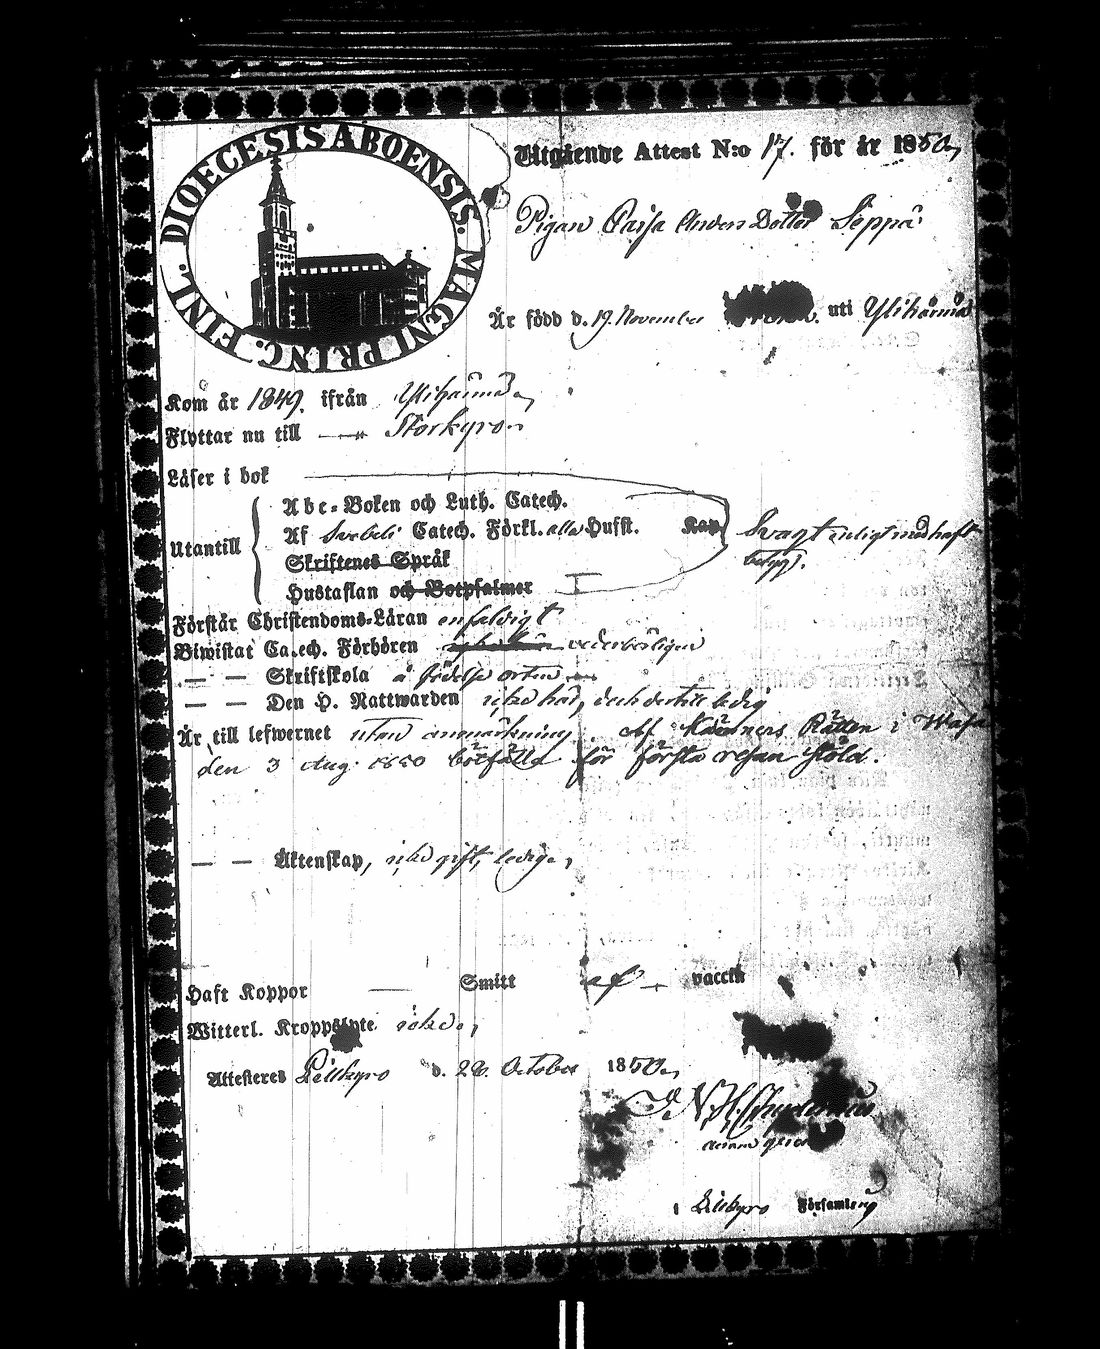 DIOECESIS ABOENSIS. MAGNI PRINC. FINL.
Utgående Attest N:o 17. för år 1850,
Pigan Caisa Anders Dotter Seppä
Är född d. 19. November uti Ylihärmä
Kom år 1849. ifrån Ylihärmä,
Flyttar nu till — Storkyro
Läser i bok
Utantill
Abc-Boken och Luth. Catech.
Af Svebeli Catech. Förkl. alla Hufst. Kap
Skriftenes Språk
Hustaflan och Botpsalmer
Svagt enligt medhaft
betyg.
Förstår Christendoms-Läran enfaldigt
Biwistat Catech. Förhören vederbörligen
— — Skriftskola å födelse orten
— — Den H. Nattwarden icke här, och dertill ledig
Är till lefwernet utan anmärkning. Af Kämners Rätten i Wasa
den 3 Aug. 1850 botfälld för första resan stöld.
— — Äktenskap, icke gift, ledig,
Haft Koppor — Smitt af — vaccin
Witterl. Kroppslyte icke,
Attesteres Lillkyro d. 28. October 1850,
I Lillkyro Församling